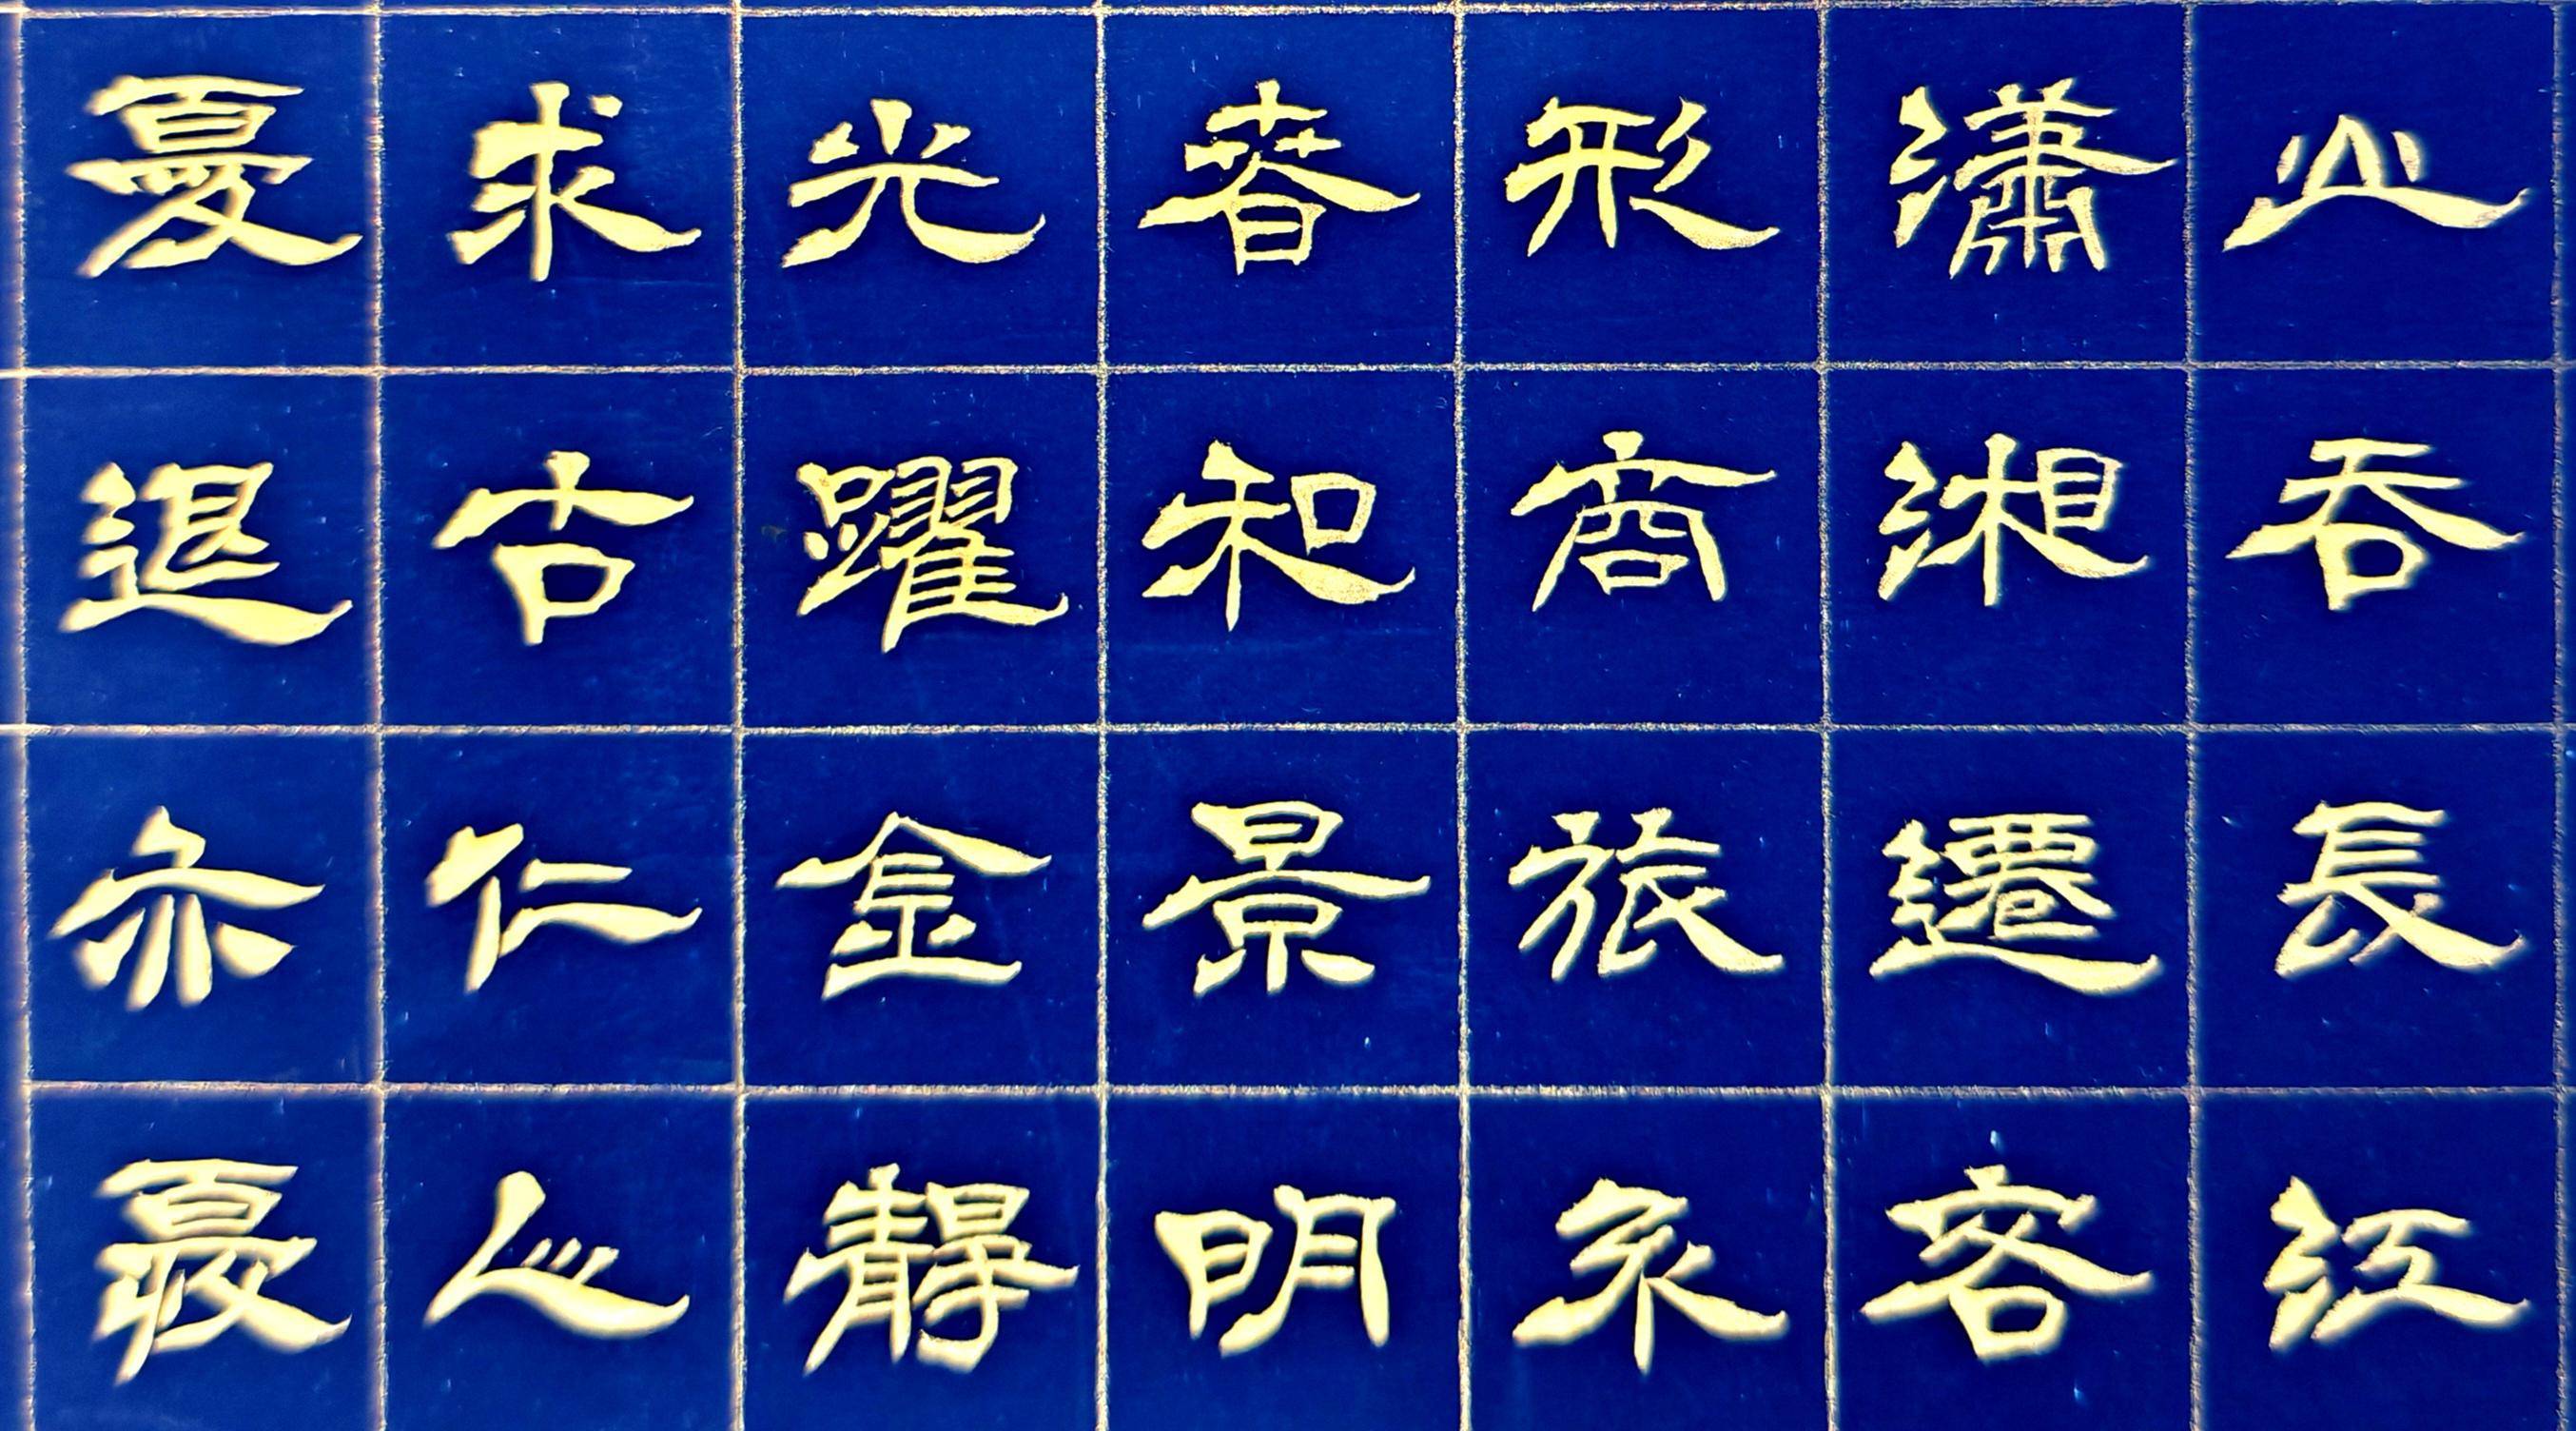 山吞長江
瀟湘遷客
形商旅不
春和景明
光躍金靜
求古仁人
憂退亦憂